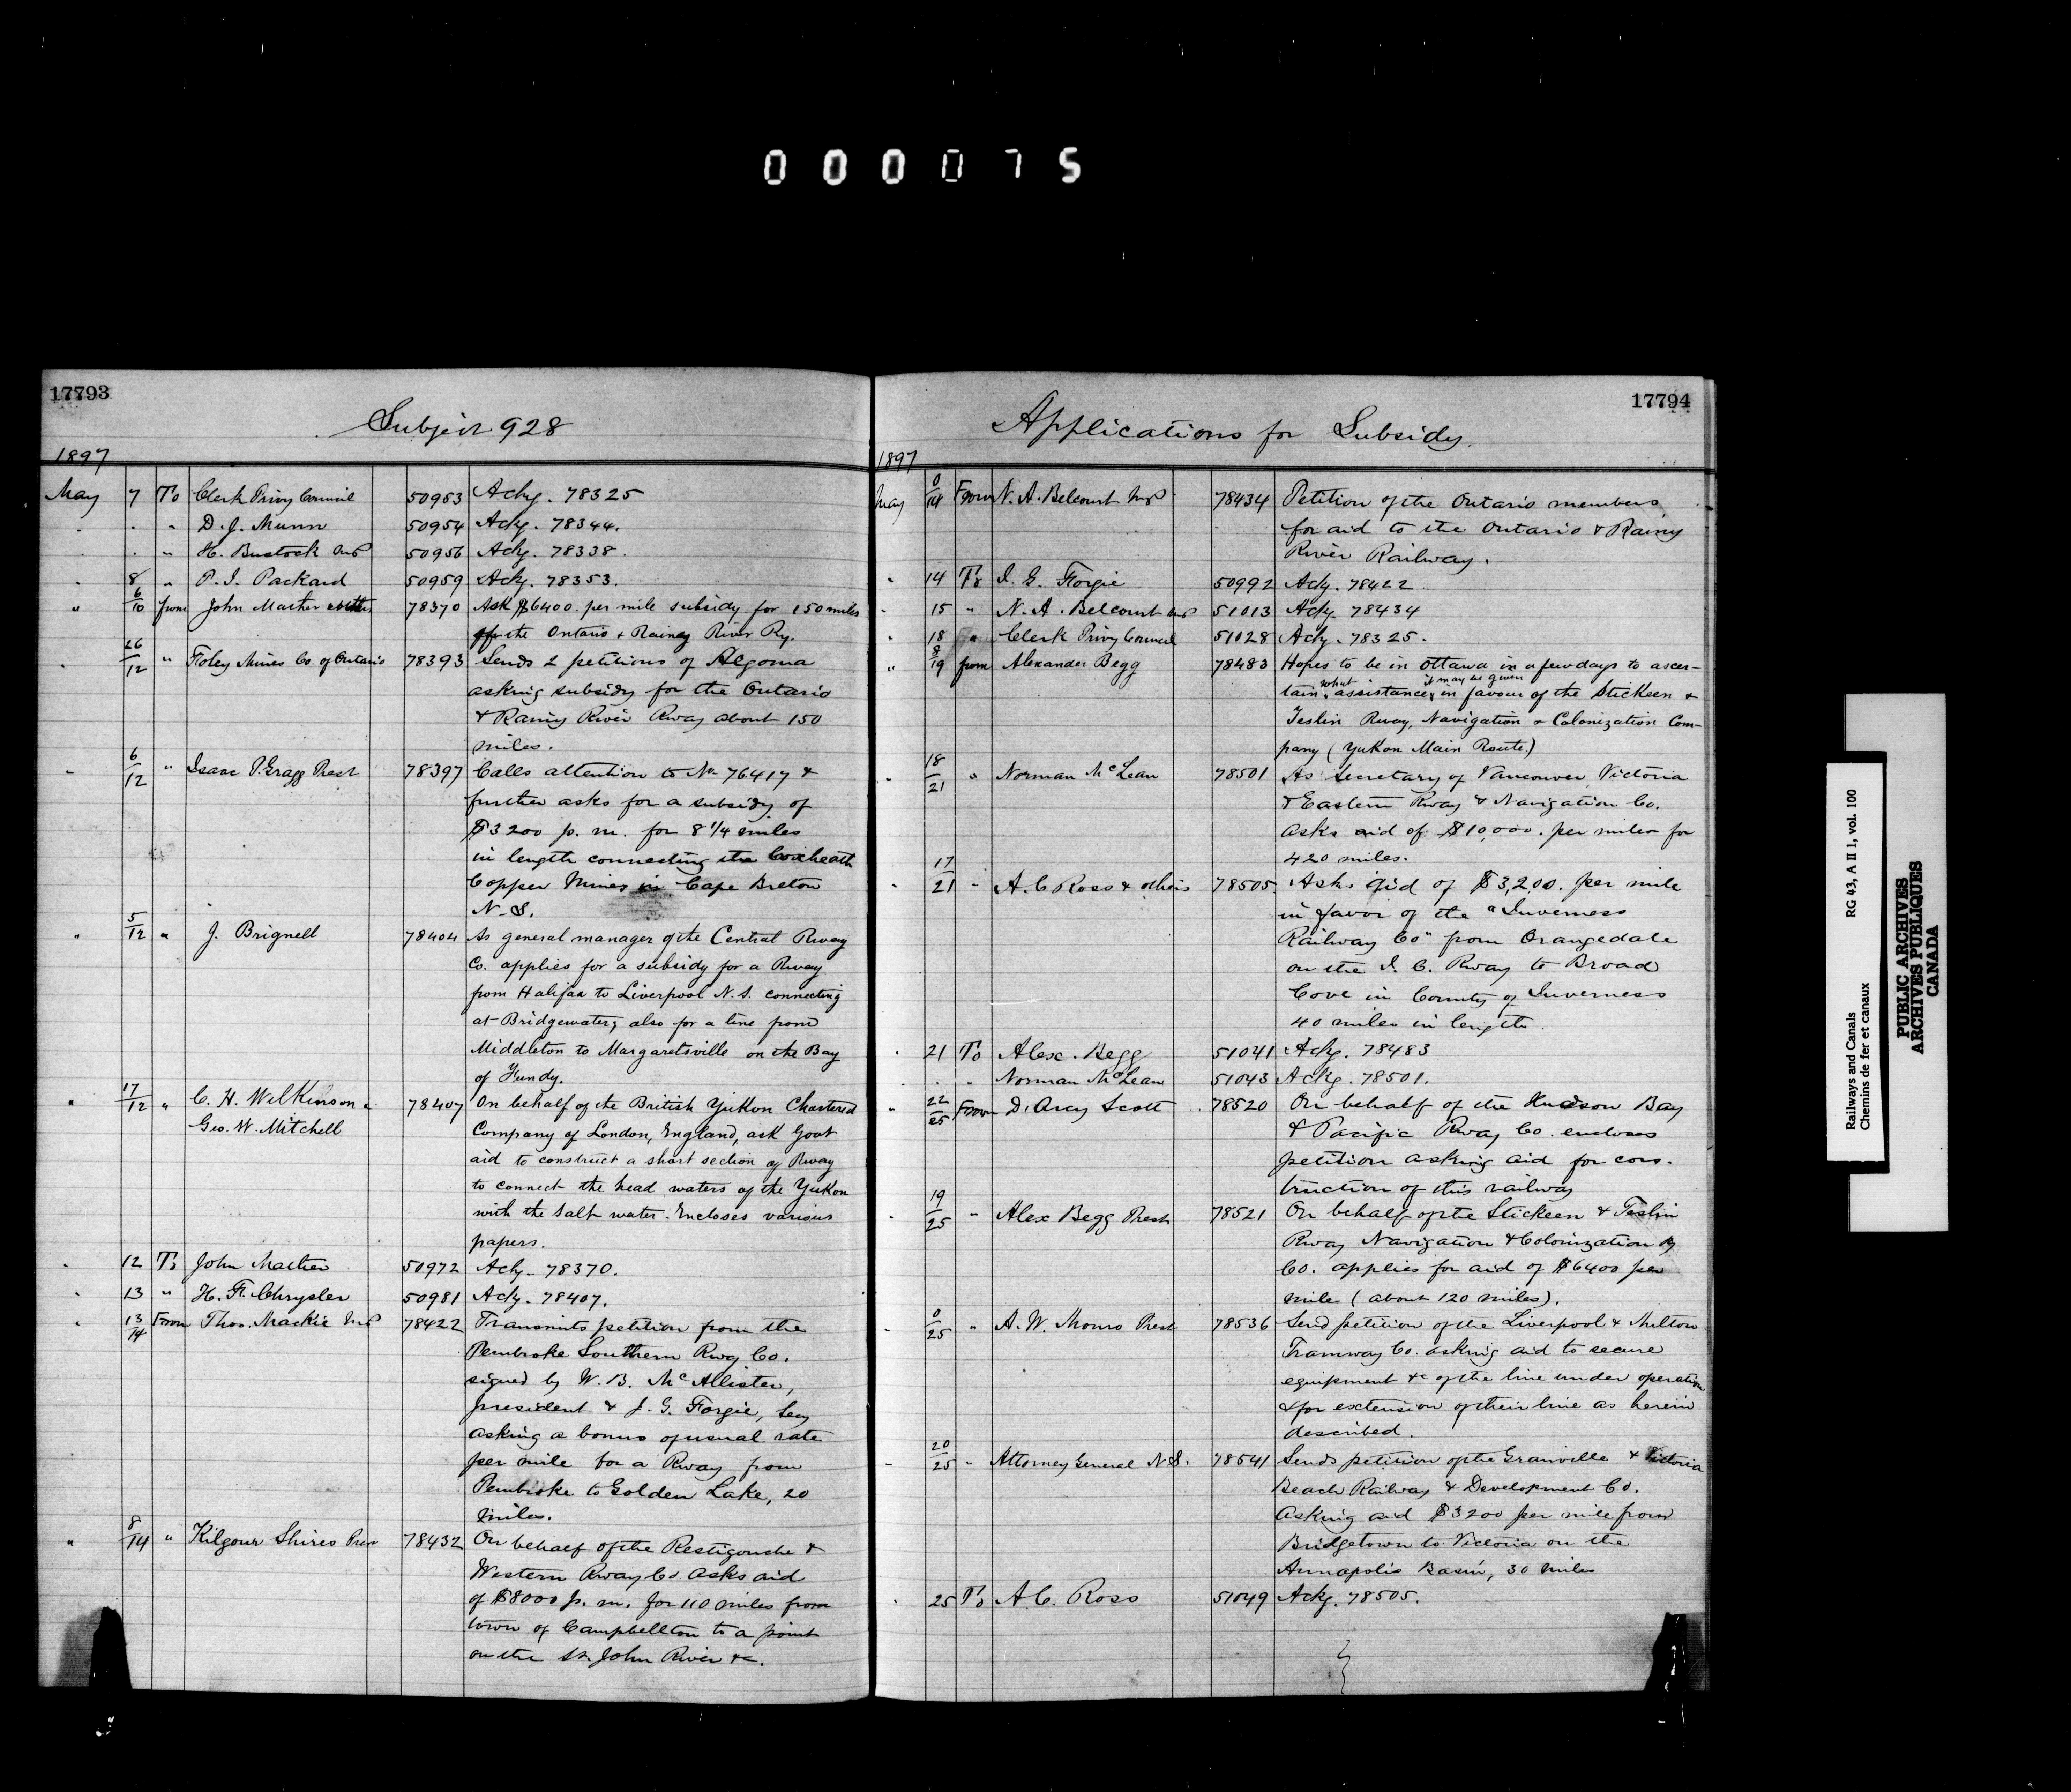 000075
17793
Subject 928
1897
May 7 To Clerk Privy Council 50953 Ackg. 78325
" " " D. J. Munn 50954 Ackg. 78344.
" " " H. Bostock MP 50956 Ackg. 78338.
" 8 " P. I. Packard 50959 Ackg. 78353.
" 6/10 from John Mather & others 78370 Ask $6400. per mile subsidy for 150 miles
of the Ontario & Rainey River Ry.
" 26/12 " Foley Mines Co. of Ontario 78393 Sends 2 petitions of Algoma
asking subsidy for the Ontario
& Rainy River Rway about 150
miles.
" 6/12 " Isaac P. Gragg Prest 78397 Calls attention to No 76417 &
further asks for a subsidy of
$3200 p. m. for 8 1/4 miles
in length connecting the Coxheath
Copper Mines in Cape Breton
N.S.
" 5/12 " J. Brignell 78404 As general manager of the Central Rway
Co. applies for a subsidy for a Rway
from Halifax to Liverpool N.S. connecting
at Bridgewater; also for a line from
Middleton to Margaretsville on the Bay
of Fundy.
" 17/12 " C. H. Wilkinson & 78407 On behalf of the British Yukon Chartered
Geo. W. Mitchell Company of London, England, ask Govt
aid to construct a short section of Rway
to connect the head waters of the Yukon
with the salt water. Encloses various
papers.
" 12 To John Mather 50972 Ackg. 78370.
" 13 " H. F. Chrysler 50981 Ackg. 78407.
" 13/14 From Thos. Mackie MP 78422 Transmits petition from the
Pembroke Southern Rwy Co.
signed by W. B. McAllister,
president & J. G. Forgie, Secy
asking a bonus of usual rate
per mile for a Rway from
Pembroke to Golden Lake, 20
miles.
" 8/14 " Kilgour Shives Pres 78432 On behalf of the Restigouche &
Western Rway Co asks aid
of $8000 p. m. for 110 miles from
town of Campbellton to a point
on the St. John River &c.
17794
Applications for Subsidy.
1897
May 0/14 From N. A. Belcourt MP 78434 Petition of the Ontario members
for aid to the Ontario & Rainy
River Railway.
" 14 To J. G. Forgie 50992 Ackg. 78422.
" 15 " N. A. Belcourt MP 51013 Ackg. 78434
" 18 " Clerk Privy Council 51028 Ackg. 78325.
" 8/19 from Alexander Begg 78483 Hopes to be in Ottawa in a few days to ascer-
tain what assistance it may be given in favour of the Stickeen &
Teslin Rway, Navigation & Colonization Com-
pany (Yukon Main Route.)
" 18/21 " Norman McLean 78501 As Secretary of Vancouver, Victoria
& Eastern Rway & Navigation Co.
asks aid of $10,000. per mile for
420 miles.
" 17/21 " A. C Ross & others 78505. Asks aid of $3,200. per mile
in favor of the "Inverness
Railway Co" from Orangedale
on the I. C. Rway to Broad
Cove in County of Inverness
40 miles in length.
" 21 To Alex. Begg 51041 Ackg. 78483
" " " Norman McLean 51043 Ackg. 78501.
" 22/25 From D'Arcy Scott 78520 On behalf of the Hudson Bay
& Pacific Rway Co. encloses
petition asking aid for cons-
truction of this railway
" 19/25 " Alex Begg Prest 78521 On behalf of the Stickeen & Teslin
Rway Navigation & Colonization Ry
Co. applies for aid of $6400 per
mile (about 120 miles).
" 0/25 " A. W. Monro Prest 78536 Send petition of the Liverpool & Milton
Tramway Co. asking aid to secure
equipment &c of the line under operation
& for extension of their line as herein
described.
" 20/25 " Attorney General N.S. 78541 Sends petition of the Granville & Victoria
Beach Railway & Development Co.
asking aid $3200 per mile from
Bridgetown to Victoria on the
Annapolis Basin, 30 miles
" 25 To A. C. Ross 51049 Ackg. 78505.
Railways and Canals RG 43, A II 1, vol. 100
Chemins de fer et canaux
PUBLIC ARCHIVES
ARCHIVES PUBLIQUES
CANADA